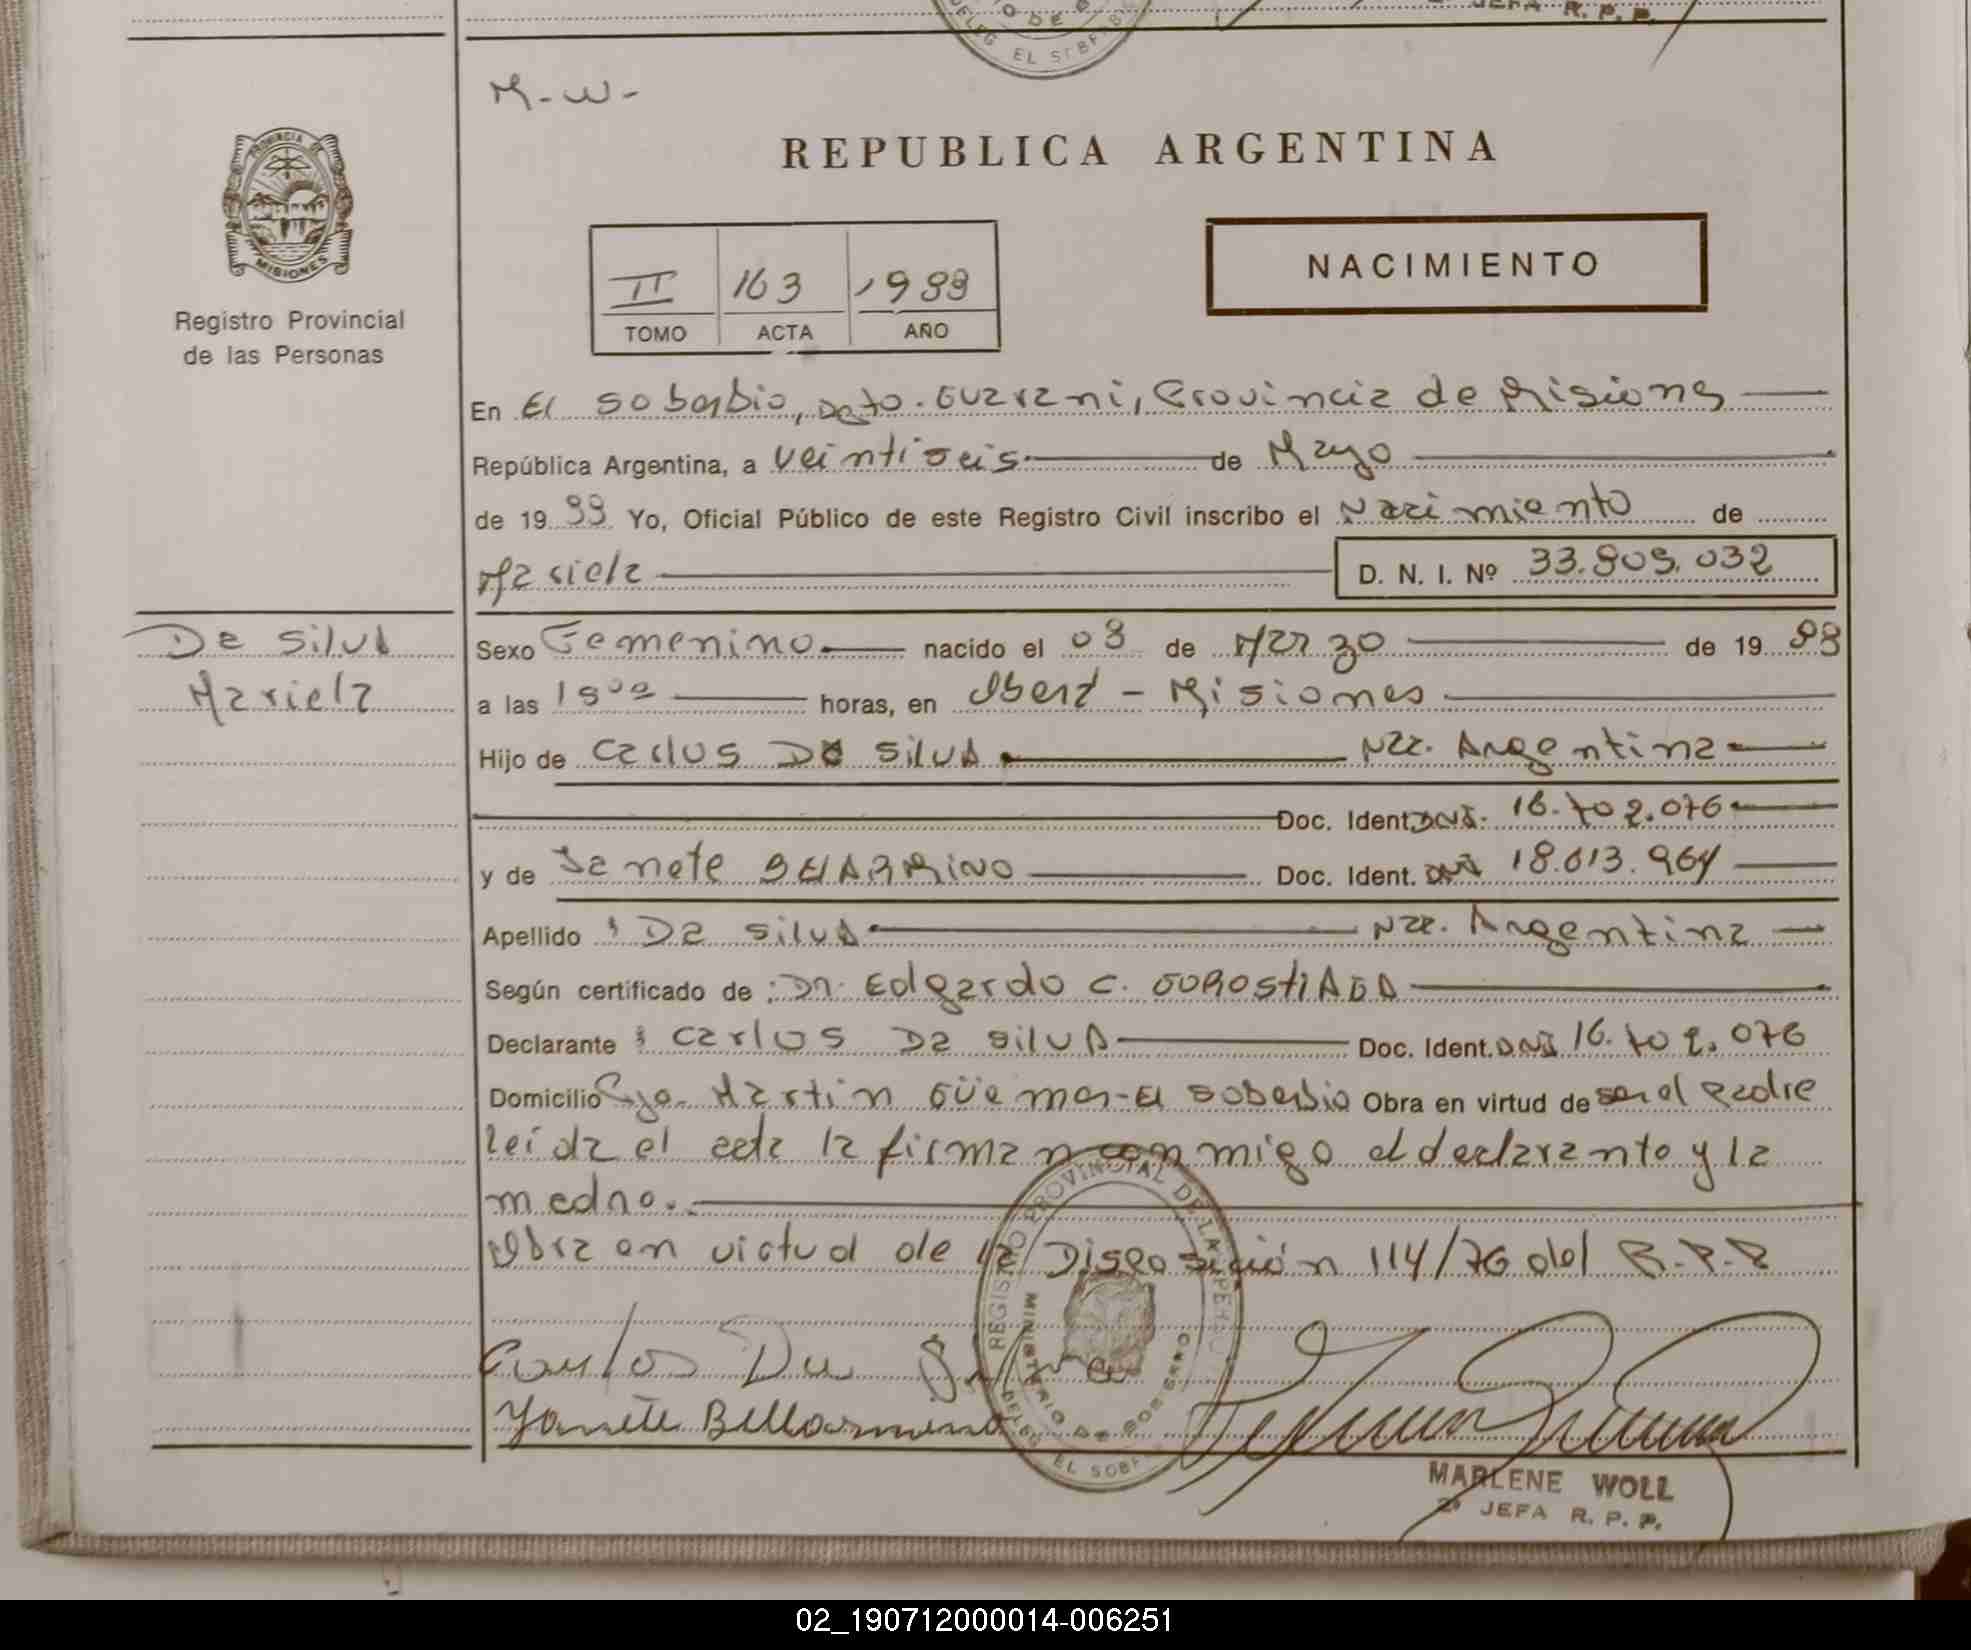 JEFA R. P. P.
DELEG EL SOBE
M-W-
PROVINCIA DE
MISIONES
Registro Provincial
de las Personas
REPUBLICA ARGENTINA
II 163 1988
TOMO ACTA AÑO
NACIMIENTO
En El Soberbio, Dpto. Guarani, Provincia de Misiones
República Argentina, a veintiseis de Mayo
de 1988 Yo, Oficial Público de este Registro Civil inscribo el Nacimiento de
Mariela D. N. I. Nº 33.809.032
Da Silva
Mariela
Sexo Femenino nacido el 08 de Marzo de 1988
a las 19 horas, en Oberá - Misiones
Hijo de Carlos Da Silva Nac. Argentina
Doc. Ident. DNI. 16.702.076
y de Janete BELARMINO Doc. Ident. DNI 18.013.964
Apellido : Da Silva Nac. Argentina
Según certificado de : Dr. Edgardo C. GOROSTIAGA
Declarante : Carlos Da Silva Doc. Ident. DNI 16.702.076
Domicilio Martin Güemes-El Soberbio Obra en virtud de ser el Padre
leida el acta la firman conmigo el declarante y la
madre.
Obra en virtud de la Disposición 114/76 del R.P.P
REGISTRO PROVINCIAL DE LA PERSO
MINISTERIO DE GOBIERNO
DELEG EL SOBE
Carlos Da Silva
Yanete Bellarmino
MARLENE WOLL
2ª JEFA R. P. P.
02_190712000014-006251